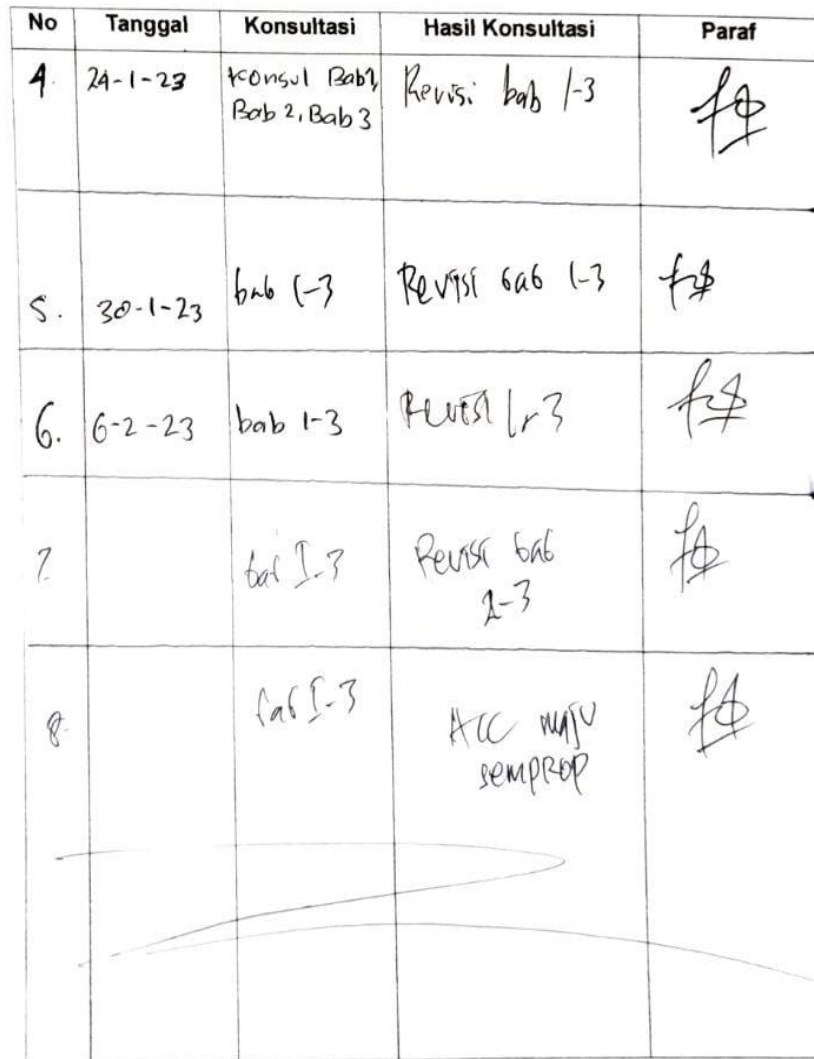 No Tanggal Konsultasi Hasil Konsultasi Paraf
4. 24-1-23 Konsul Bab 1, Revisi bab 1-3
Bab 2, Bab 3
5. 30-1-23 bab 1-3 Revisi bab 1-3
6. 6-2-23 bab 1-3 Revisi 1-3
7. bab I-3 Revisi bab
2-3
8. bab I-3 ACC maju
semprop